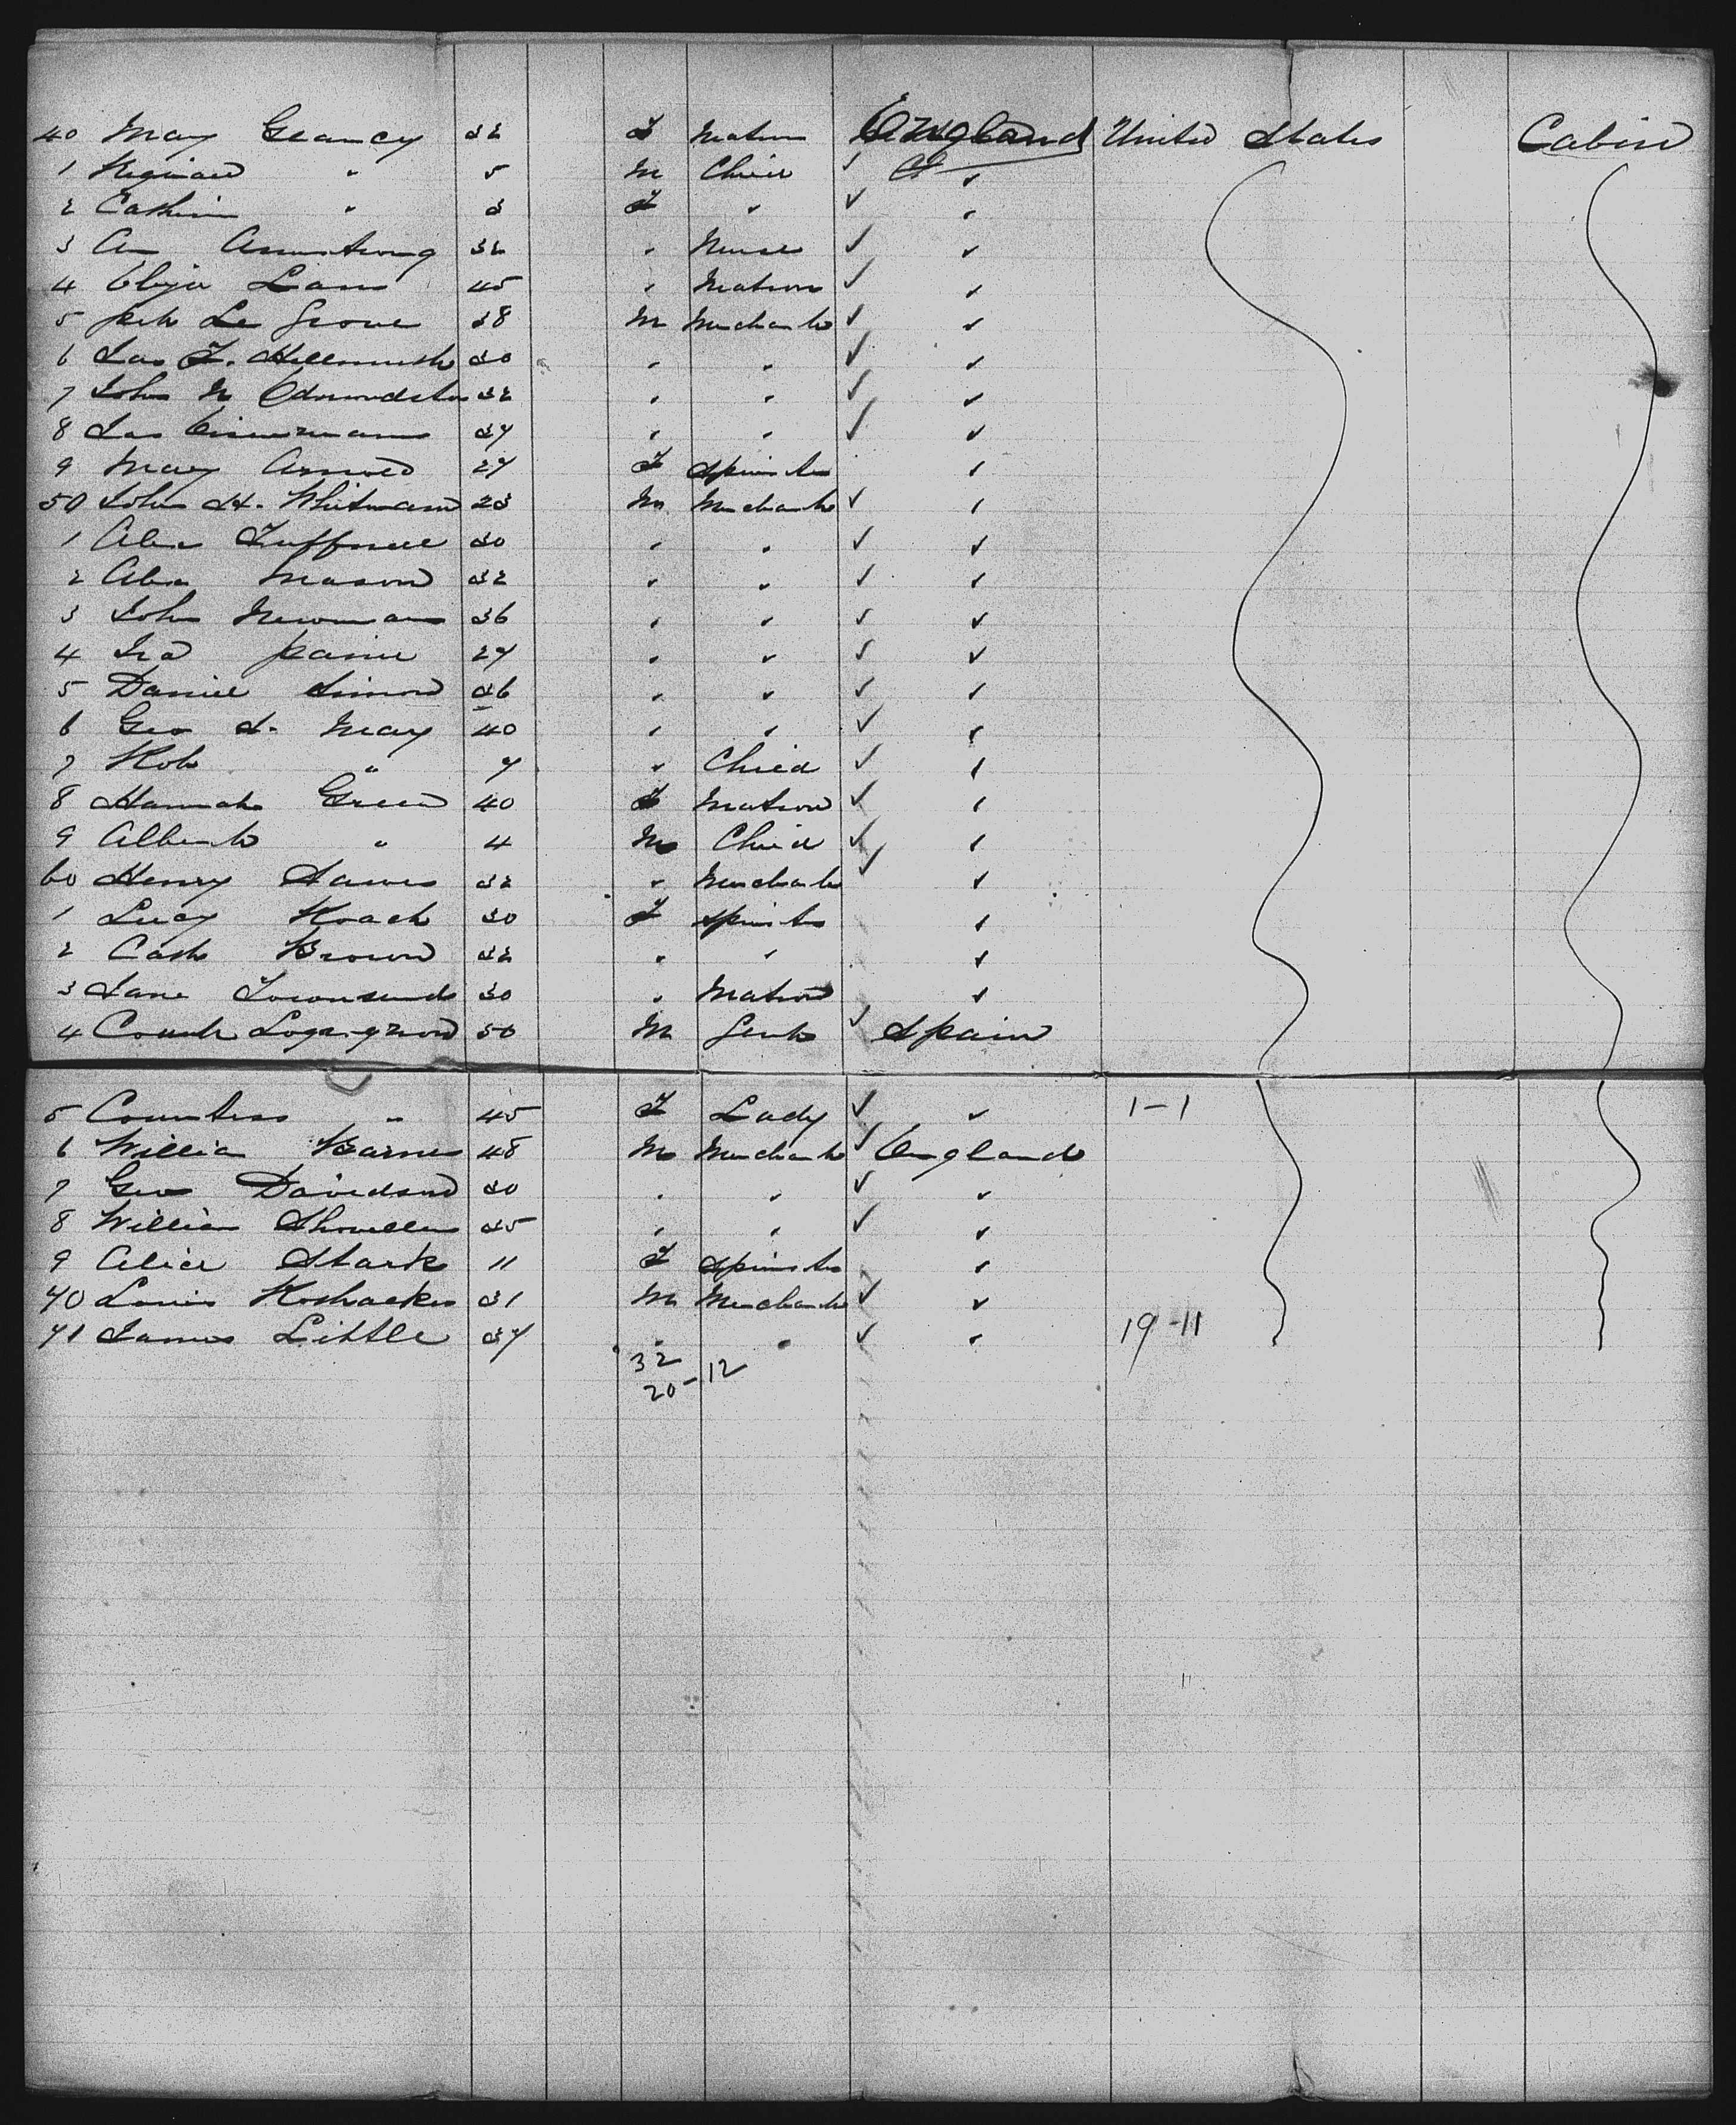 40 Mary Geancy 32 F Matron England United States Cabin
1 Reginald " 5 M Child ✓ ✓
2 Cathrin " 3 F " ✓ ✓
3 An Armstrong 32 " Nurse ✓ ✓
4 Eliza Lane 45 " Matron ✓ ✓
5 Le Grove 38 M Merchant ✓ ✓
6 Jas F. Hellmuth 30 " " ✓ ✓
7 John N Edmondston 32 " " ✓ ✓
8 Jas 37 " " ✓ ✓
9 Mary Arnold 27 F Spinster ✓
50 John H. Whitman 23 M Merchant ✓ ✓
1 Alex Tuffnell 30 " " ✓ ✓
2 Alex Mason 32 " " ✓ ✓
3 John Newman 36 " " ✓ ✓
4 Ira Paine 27 " " ✓ ✓
5 Daniel Simon 36 " " ✓ ✓
6 Geo S. May 40 " " ✓ ✓
7 Rob " 7 " Child ✓ ✓
8 Hannah Green 40 F Matron ✓ ✓
9 Albert " 4 M Child ✓ ✓
60 Henry 32 " Merchant ✓ ✓
1 Lucy Roach 30 F Spinster ✓
2 Cath Brown 32 " " ✓
3 Jane Townsend 30 " Matron ✓
4 Count 50 M Gent ✓ Spain
5 Countess " 45 F Lady ✓ ✓ 1-1
6 William Barnes 48 M Merchant ✓ England
7 Geo Davidson 30 " " ✓ ✓
8 William 35 " " ✓ ✓
9 Alice Stark 11 F Spinster ✓
70 Louis 31 M Merchant ✓ ✓
71 James Little 37 " " ✓ ✓ 19-11
32
20-12